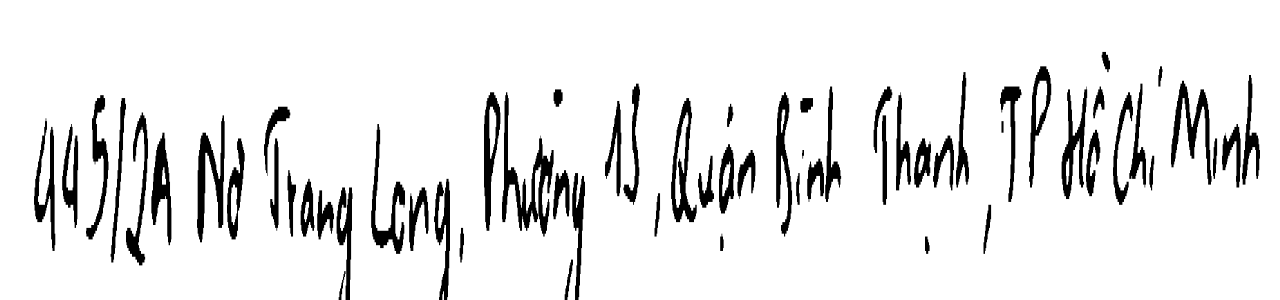 445/2A Nơ Trang Long, Phường 13, Quận Bình Thạnh, TP Hồ Chí Minh